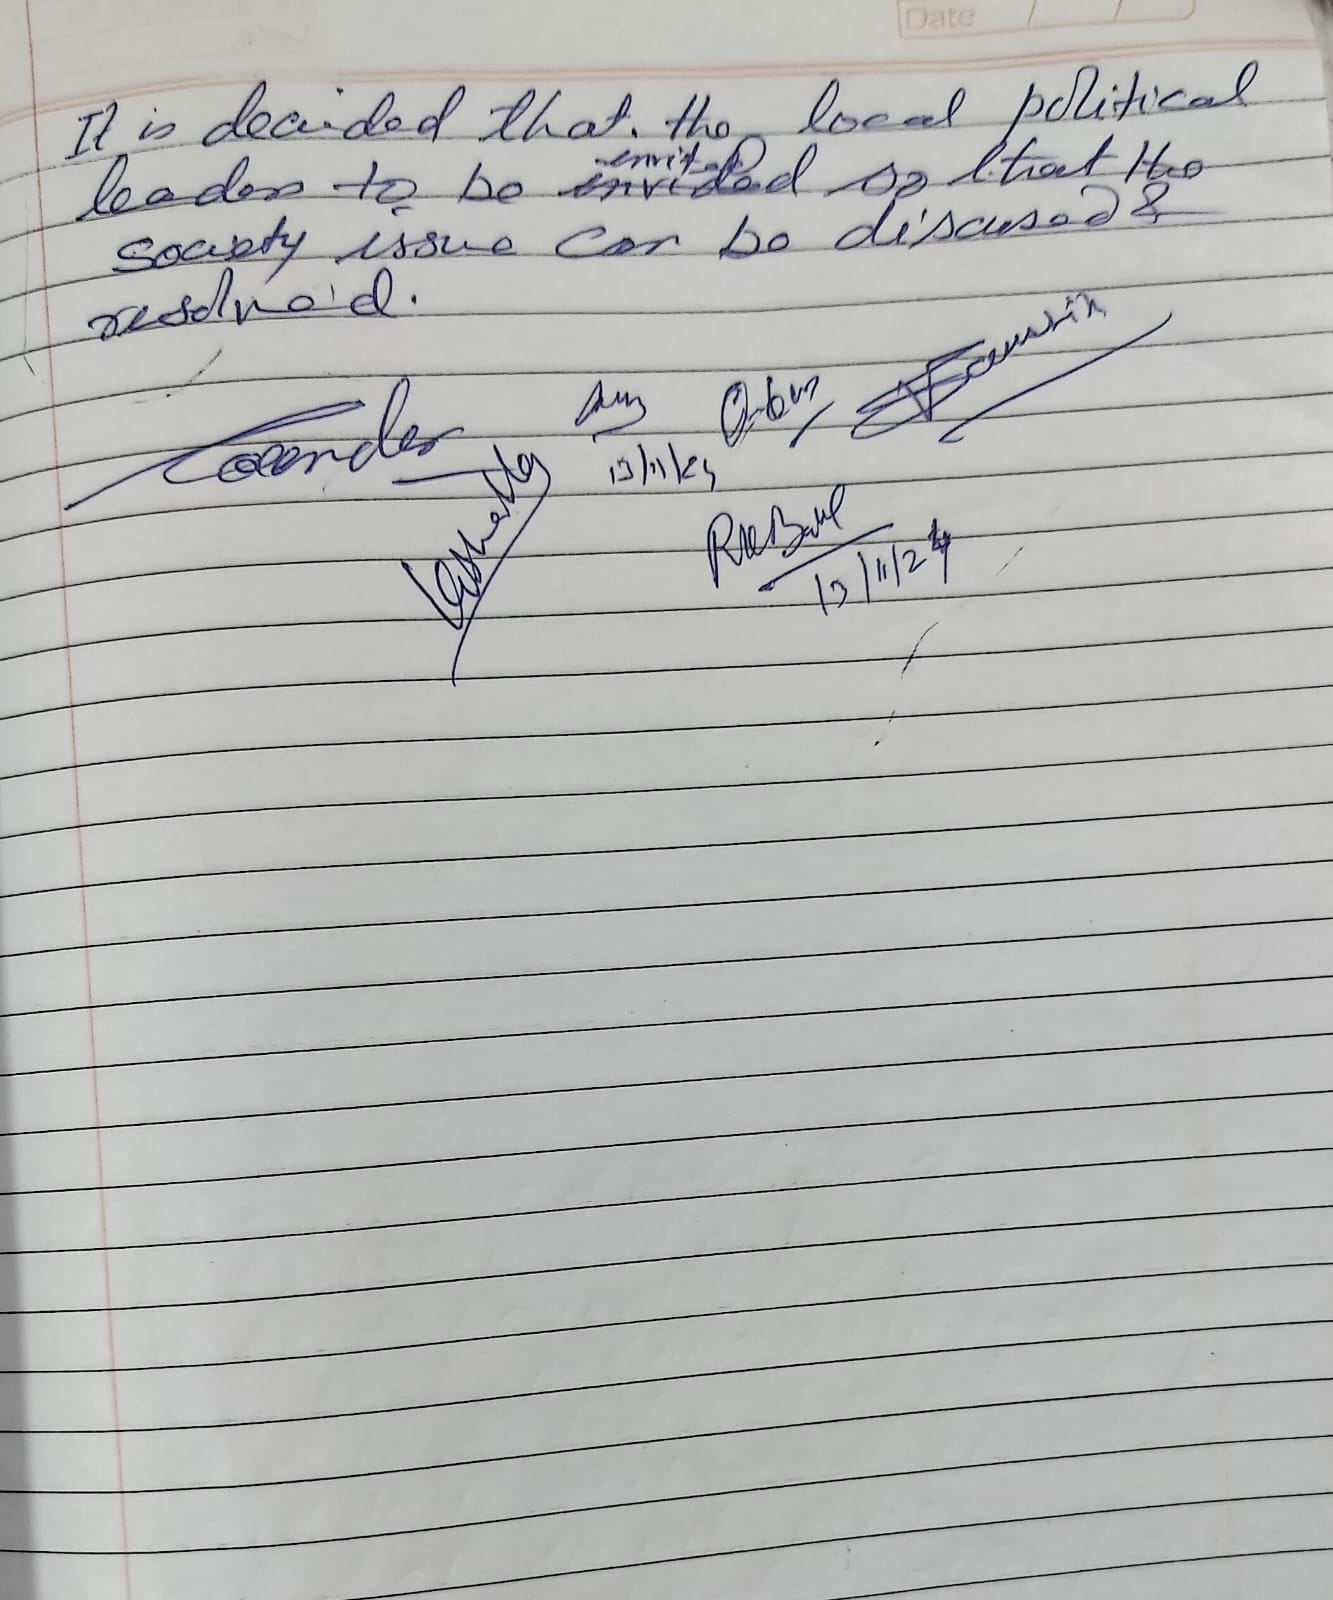 Date / /
It is decided that. the local political
leader to be invited so that the
society issue can be discused &
resolved.
13/11/24
13/11/24